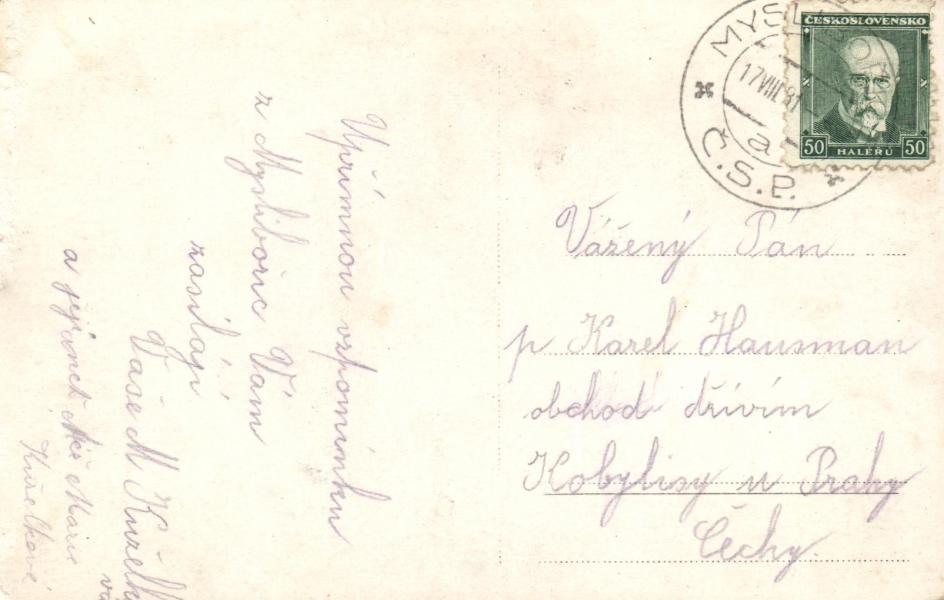 Upřímnou vzpomínku
z Mysliboric Vám
zasílají
Vaše M Kuželk
a její
Marie
Kuželkové
MYSL
17 VIII
a
Č.S.P.
ČESKOSLOVENSKO
50 HALÉŘŮ 50
Vážený Pán
p Karel Hausman
obchod dřívím
Kobylisy u Prahy
Čechy.